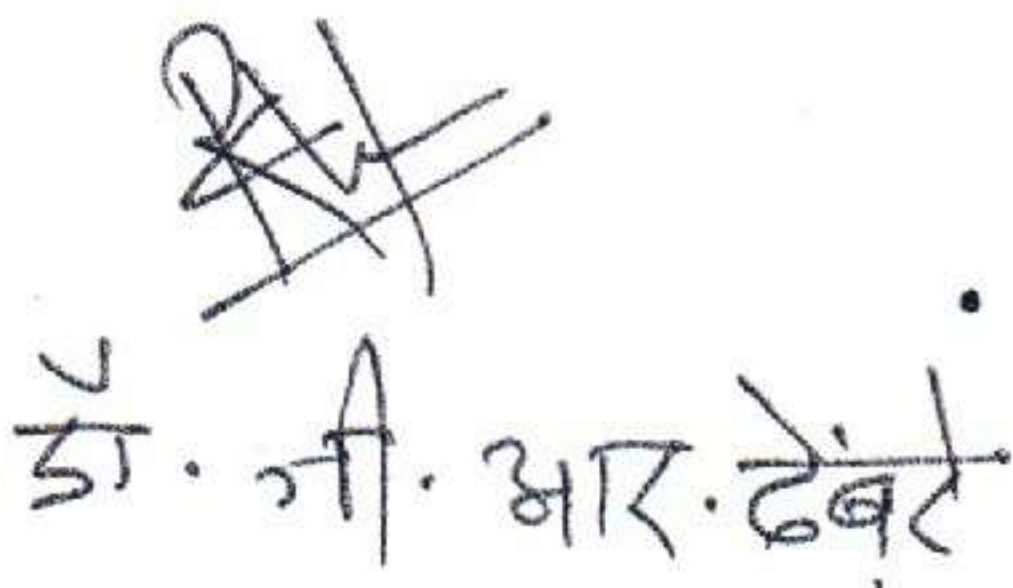 डॉ. जी. आर. ढेंबरे